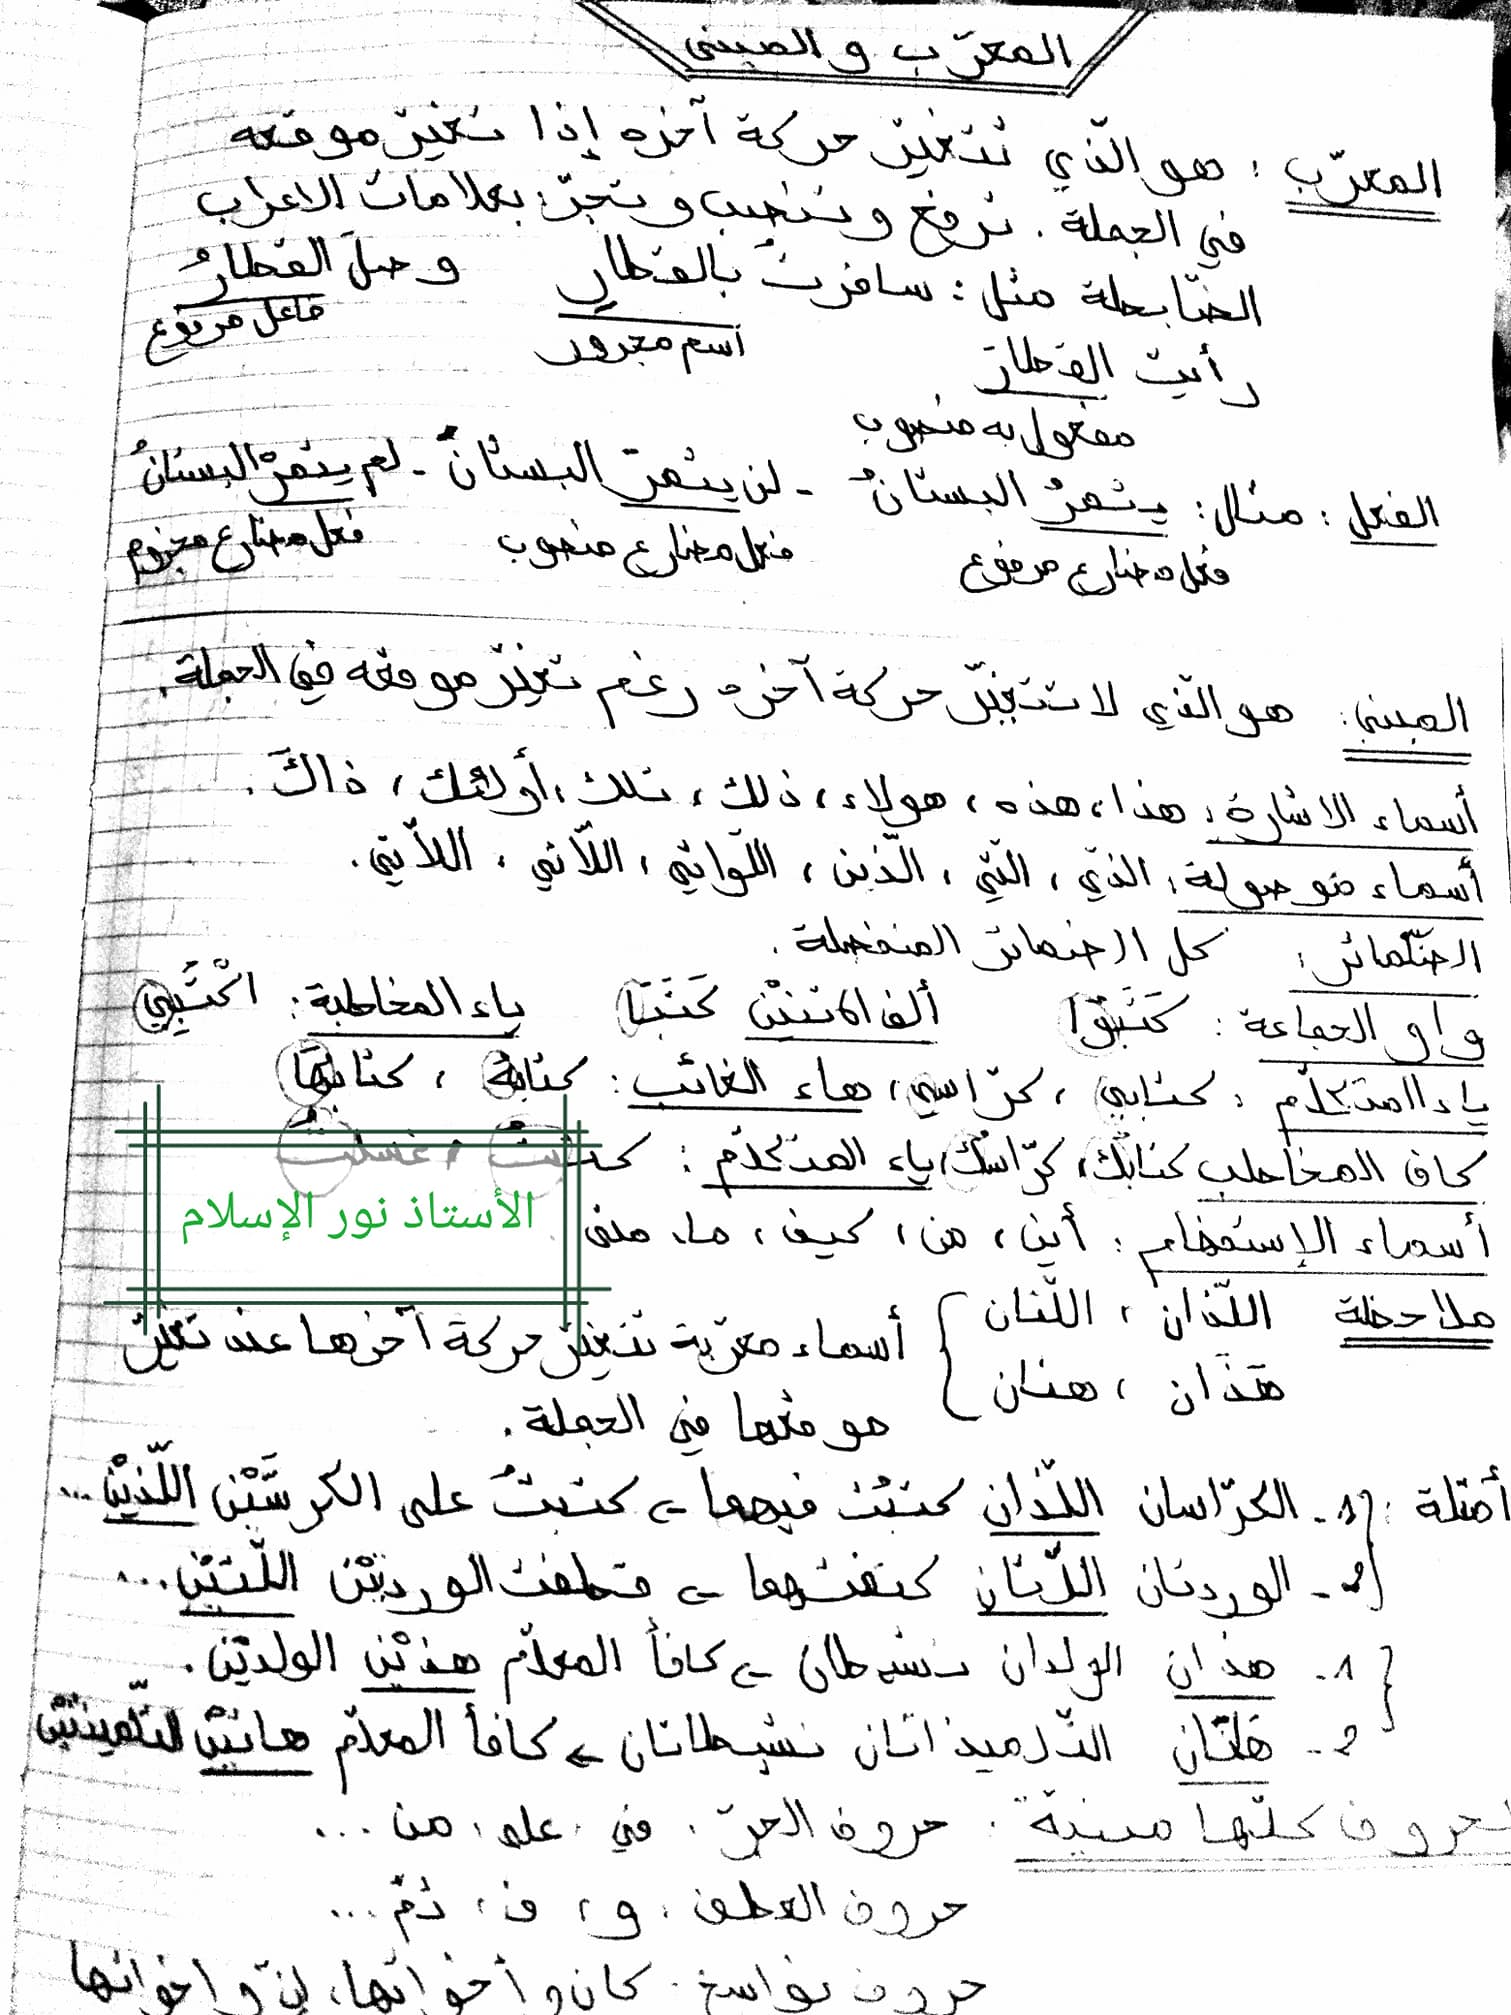 المعرّب و المبني
المعرّب : هو الّذي تتغيّر حركة آخره إذا تغيّر موقعه
في الجملة . ترفع و تنصب و تجرّ بعلامات الاعراب
الضّابطة مثل : سافرتُ بالقطارِ وصلَ القطارُ
اسم مجرور فاعل مرفوع
رأيت القطارَ
مفعول به منصوب
الفعل : مثال : يثمرُ البستانُ - لن يثمرَ البستانُ - لم يثمرْ البستانُ
فعل مضارع مرفوع فعل مضارع منصوب فعل مضارع مجزوم
المبني : هو الّذي لا تتغيّر حركة آخره رغم تغيّر موقعه في الجملة .
أسماء الاشارة : هذا ، هذه ، هولاء ، ذلك ، تلك ، أولئك ، ذاكَ .
أسماء موصولة : الذي ، الّتي ، الّذين ، اللّواتي ، اللّائي ، اللّاتي .
الضّمائر : كل الضمائر المنفصلة .
واو الجماعة : كَتَبُوا ألف الاثنيْن كَتَبَا ياء المخاطبة : اكْتُبِي
ياء المتكلّم : كتابي ، كرّاسي ، هاء الغائب : كتابهُ ، كتابهَا
كاف المخاطب كتابكَ ، كرّاسكَ ، ياء المتكلّم : كتبتُ ، غسلتُ
الأستاذ نور الإسلام
أسماء الإستفهام : أين ، من ، كيف ، ما ، متى
ملاحظة اللّذان ، اللّتان
هَذان ، هتان
أسماء معربة تتغيّر حركة آخرها عند تغيّر
موقعها في الجملة .
أمثلة : 1- الكرّاسان اللّذان كتبْتُ فيهما ← كتبتُ على الكرسَّيْن اللّذيْن ...
2- الوردتان اللّتان قطفتهما ← قطفت الوردتيْن اللّتيْن ...
1- هذان الولدان نشيطان ← كافأ المعلّم هذيْن الولديْن .
2- هَتَان التّلميذاتان نشيطاتان ← كافأ المعلّم هاتيْن التّلميذتيْن
لحروف كلّها مبنيّة : حروف الجرّ : في ، على ، من ...
حروف العطف : و ، ف ، ثمّ ...
حروف نواسخ : كان و أخواتها ، إنّ و اخواتها